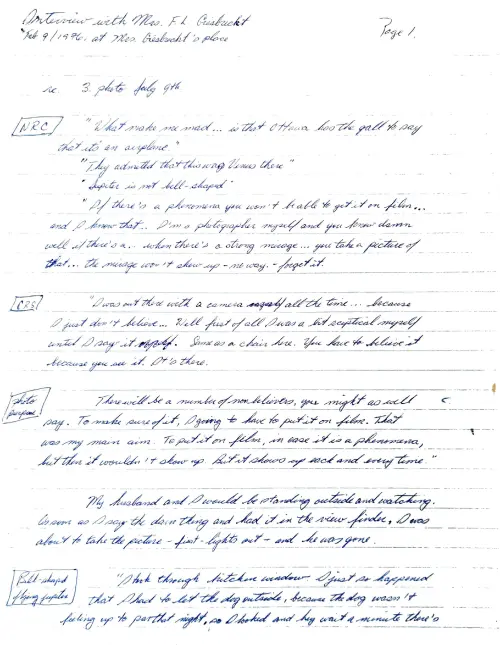 Interview with Mrs. F L Giesbrecht
Feb 9/1976. at Mrs. Giesbrecht's place
Page 1.
re 3. photo July 9th
NRC
"What make me mad... is that Ottawa has the gall to say
that it's an airplane."
"They admitted that this way Venus there"
"Jupiter is not bell-shaped"
"If there's a phenomena you won't b able to get it on film...
and I know that.. I'm a photographer myself and you know damn
well if there's a... when there's a strong mirage... you take a picture of
that... the mirage won't show up - no way. - forget it.
CRS
"I was out there with a camera all the time... because
I just don't believe... Well first of all I was a bit sceptical myself
until I say it. Same as a chair here. You have to believe it
because you see it. It's there.
photo purpose
There will be a number of non believers, you might as well
say. To make sure of it, I going to have to put it on film. That
was my main aim. To put it on film, in case it is a phenomena,
but then it wouldn't show up. But it shows up each and every time."
My husband and I would be standing outside and watching.
As soon as I say the darn thing and had it in the view finder, I was
about to take the picture - just - lights out - and he was gone.
Bell-shaped
flying jupiter
"I look through kitchen window I just so happened
that I had to let the dog outside, because the dog wasn't
feeling up to par that night, so I looked and hey wait a minute there's